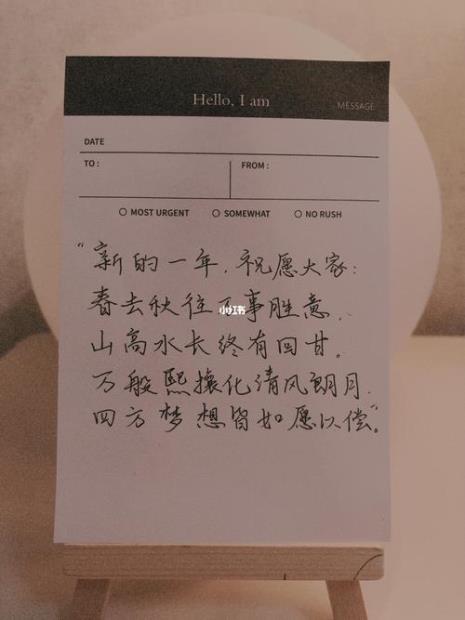 Hello, I am
MESSAGE
DATE
TO :
FROM :
MOST URGENT
SOMEWHAT
NO RUSH
“新的一年,祝愿大家:
春去秋往万事胜意,
山高水长终有回甘。
万般熙攘化清风朗月,
四方梦想皆如愿以偿”。
小红书